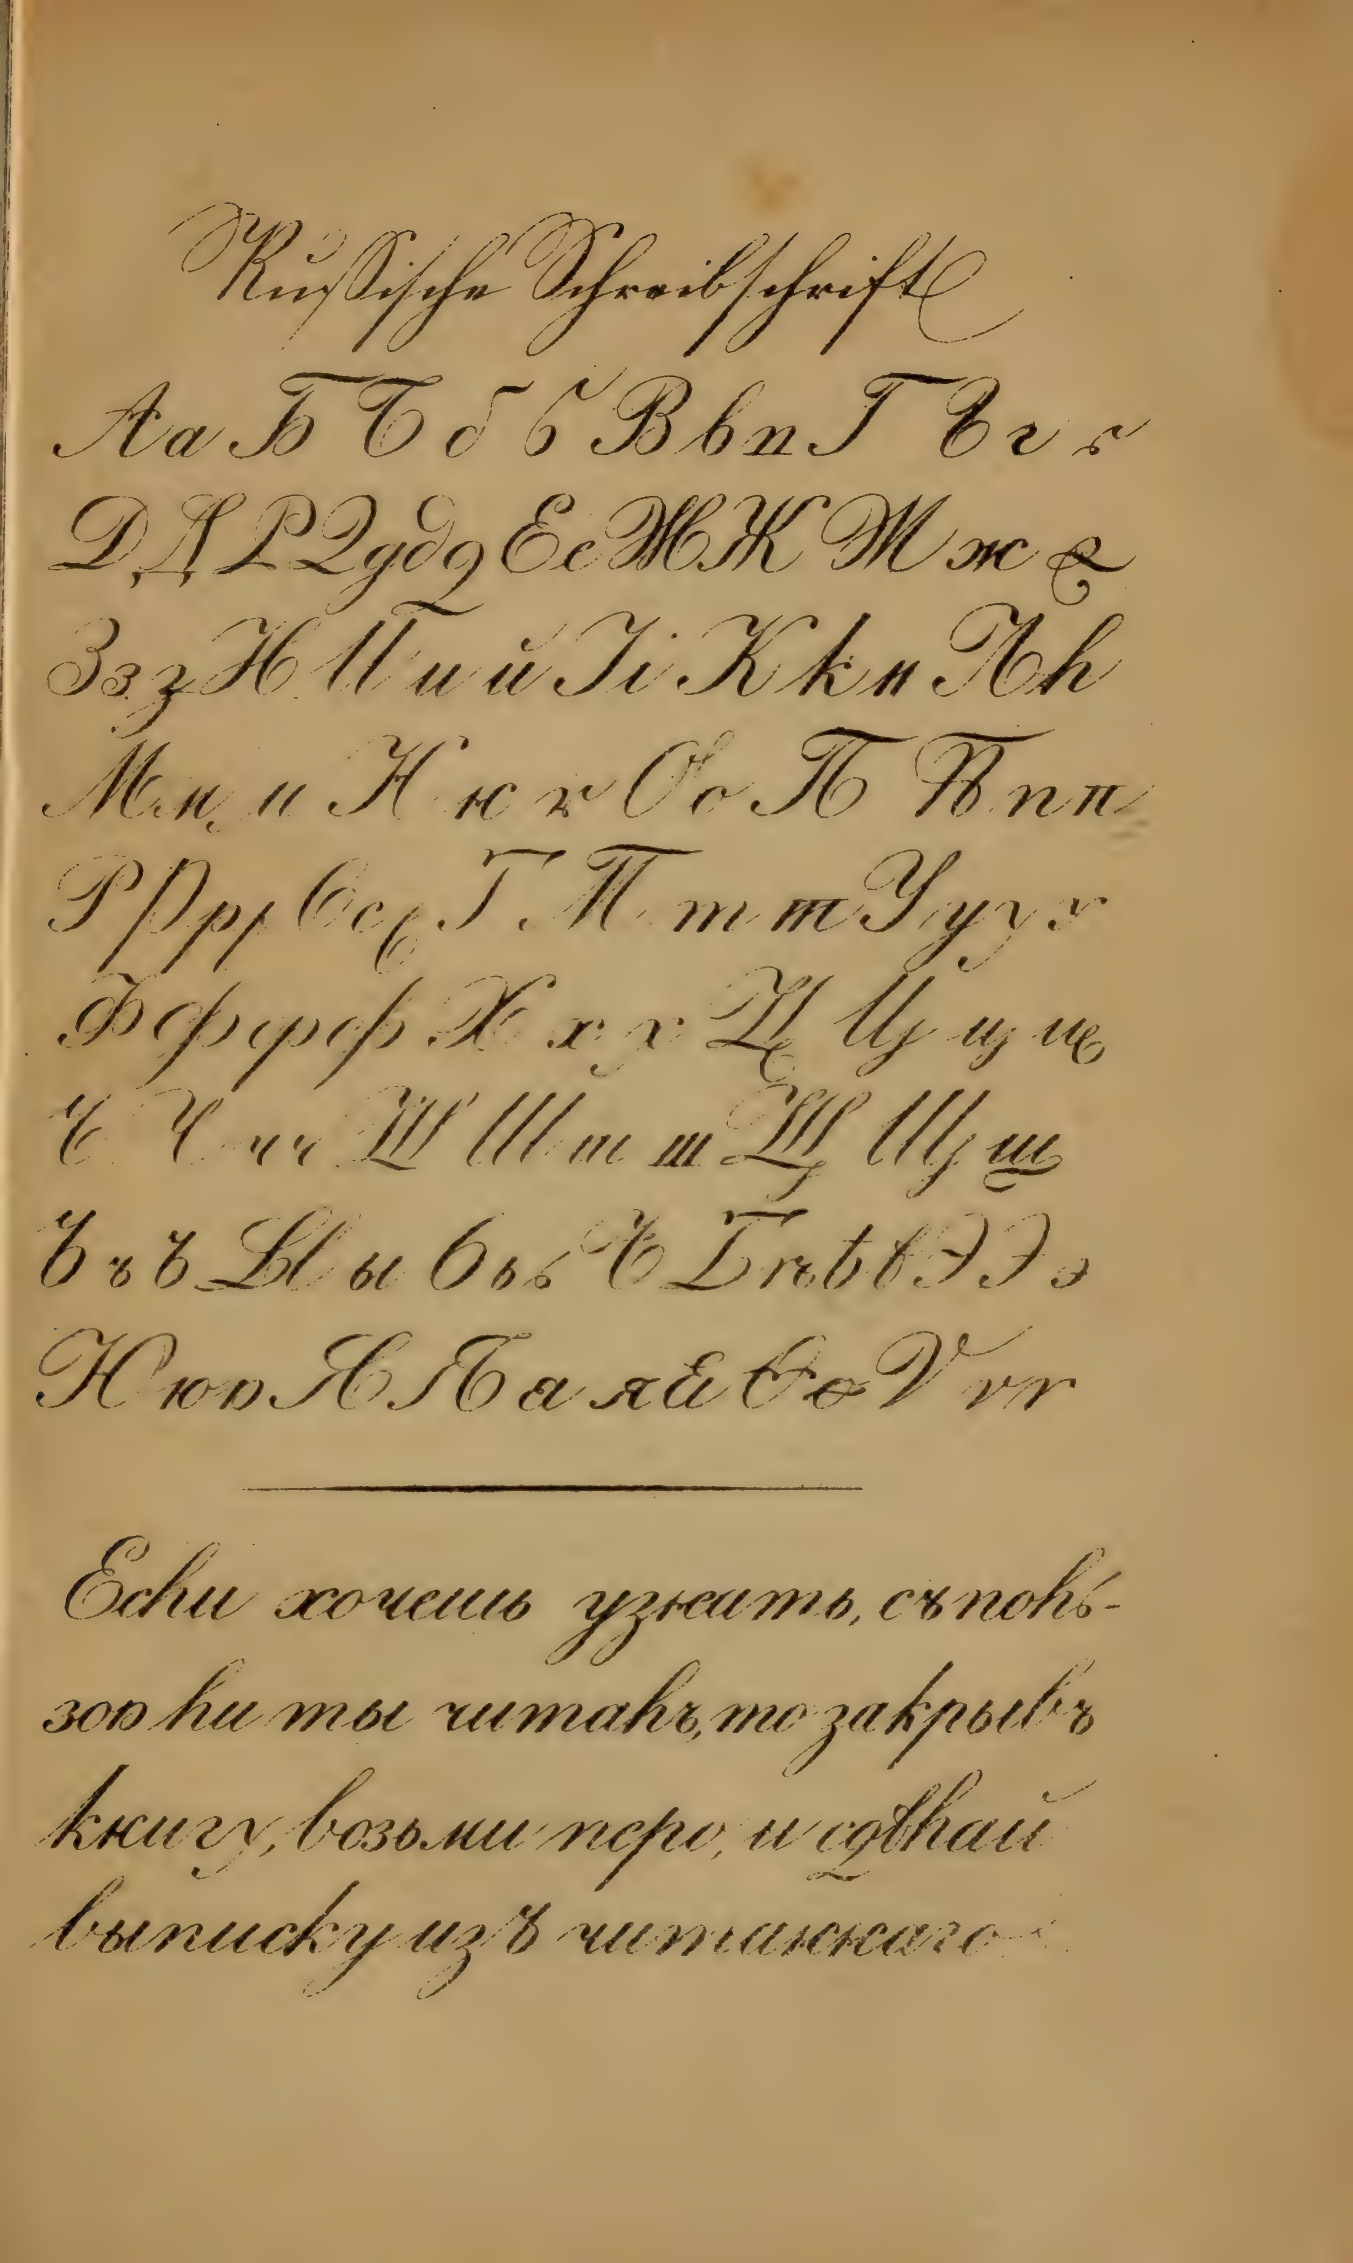 Russische Schreibschrift
Аа Б Б б б В в в Г Г г г
Д Д Д Д д д д Е е Ж Ж Ж ж ж
З з з И И и й І і К к к Л л
М м м Н н н О о П П п п
Р Р р р С с с Т Т т т У у у у
Ф ф ф ф Х х х Ц Ц ц ц
Ч Ч ч ч Ш Ш ш ш Щ Щ щ
Ъ ъ ъ Ы ы Ь ь ь Ѣ Ѣ ѣ ѣ ѣ Э Э э
Ю ю ю Я Я я я Ѳ ѳ Ѵ ѵ ѵ
Если хочешь узнать, съ поль-
зою ли ты читалъ, то закрывъ
книгу, возьми перо, и сдѣлай
выписку изъ читаннаго